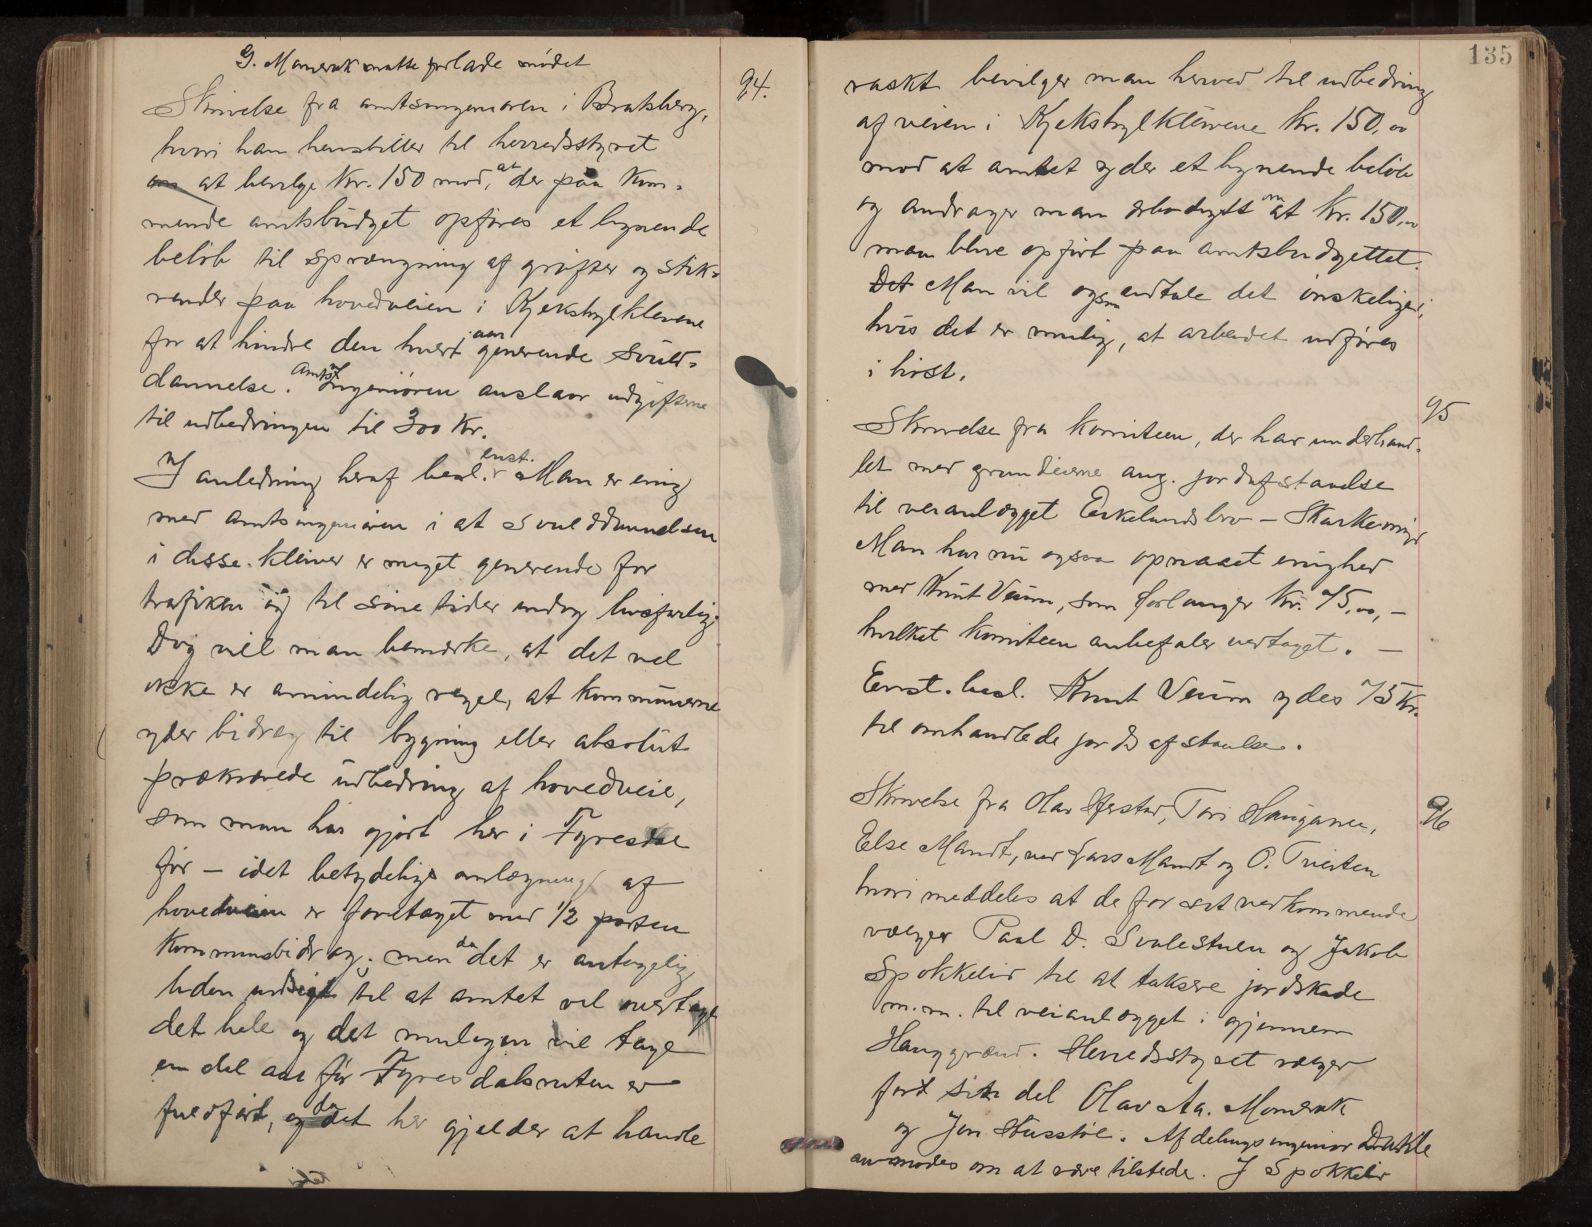 G. Momrak maatte forlade mødet
94.
Skrivelse fra amtsingeniøren i Bratsberg,
hvori han henstiller til herredsstyret
om at bevilge Kr. 150 mod, at der paa kom-
mende amtsbudget opføres et lignende
beløb til sprængning af grøfter og stik-
render paa hovedveien i Kjekstrylklevene
for at hindre den hvert aar generende svull-
dannelse. Amtsingeniøren anslaar udgifterne
til udbedringen til 300 Kr.
I anledning heraf besl. enst. Man er enig
med amtsingeniøren i at svulddannelsen
i disse kleiver er meget generende for
trafiken og til sine tider endog livsfarlig.
Dog vil man bemerke, at det vel
ikke er almindelig regel, at kommunerne
yder bidrag til bygning eller absolut
prækævede udbedring af hovedveie,
som man har gjort her i Fyresdal
før – idet betydelige omlægninger af
hovedveien er foretaget med 1/2 parten
kommunebidrag; men da det er antagelig
liden udsigt til at amtet vil overtage
det hele og det muligen vil tage
en del aar før Fyresdalsruten er
fuldført, og da det her gjælder at handle
135
raskt bevilger man herved til udbedring
af veien i Kjekstrylkleivene Kr. 150,00
mod at amtet yder et lignende beløb
og andrager man ærbødigst om at Kr. 150,00
maa blive opført paa amtsbudgettet.
Det Man vil ogsaa udtale det ønskelige i,
hvis det er mulig, at arbeidet udføres
i høst.
95
Skrivelse fra komiteen, der har underhand-
let med grundeierne ang. jordafstaaelse
til veianlægget Eikelandsbro –
Man har nu ogsaa opnaaet enighed
med Knut Veum, som forlanger Kr. 75,00, –
hvilket komiteen anbefaler vedtaget. –
Enst. besl. Knut Veum ydes 75 Kr.
til omhandlede jordafstaaelse.
96
Skrivelse fra Olav Tori Haugane,
Else Mandt, ved Lars Mandt og O. Tveiten
hvori meddeles at de for sit vedkommende
vælger Paal D. Svalestuen og Jakob
Spokkelid til at taksere jordskade
m.m. til veianlægget i gjennem
Hauggrænd. Herredsstyret vælger
for sin del Olav Aa. Momrak
og Jon Husstøl. Afdelingsingeniør
anmodes om at være tilstede. I Spokkelid